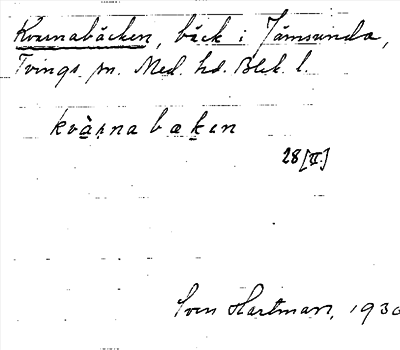 Kvarnabäcken, bäck i Jämsunda,
Tvings sn. Med. hd. Blek. l.
kvàrnabæken
28[II.]
Sven Hartman, 1930